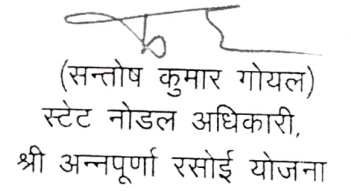 (सन्तोष कुमार गोयल)
स्टेट नोडल अधिकारी,
श्री अन्नपूर्णा रसोई योजना